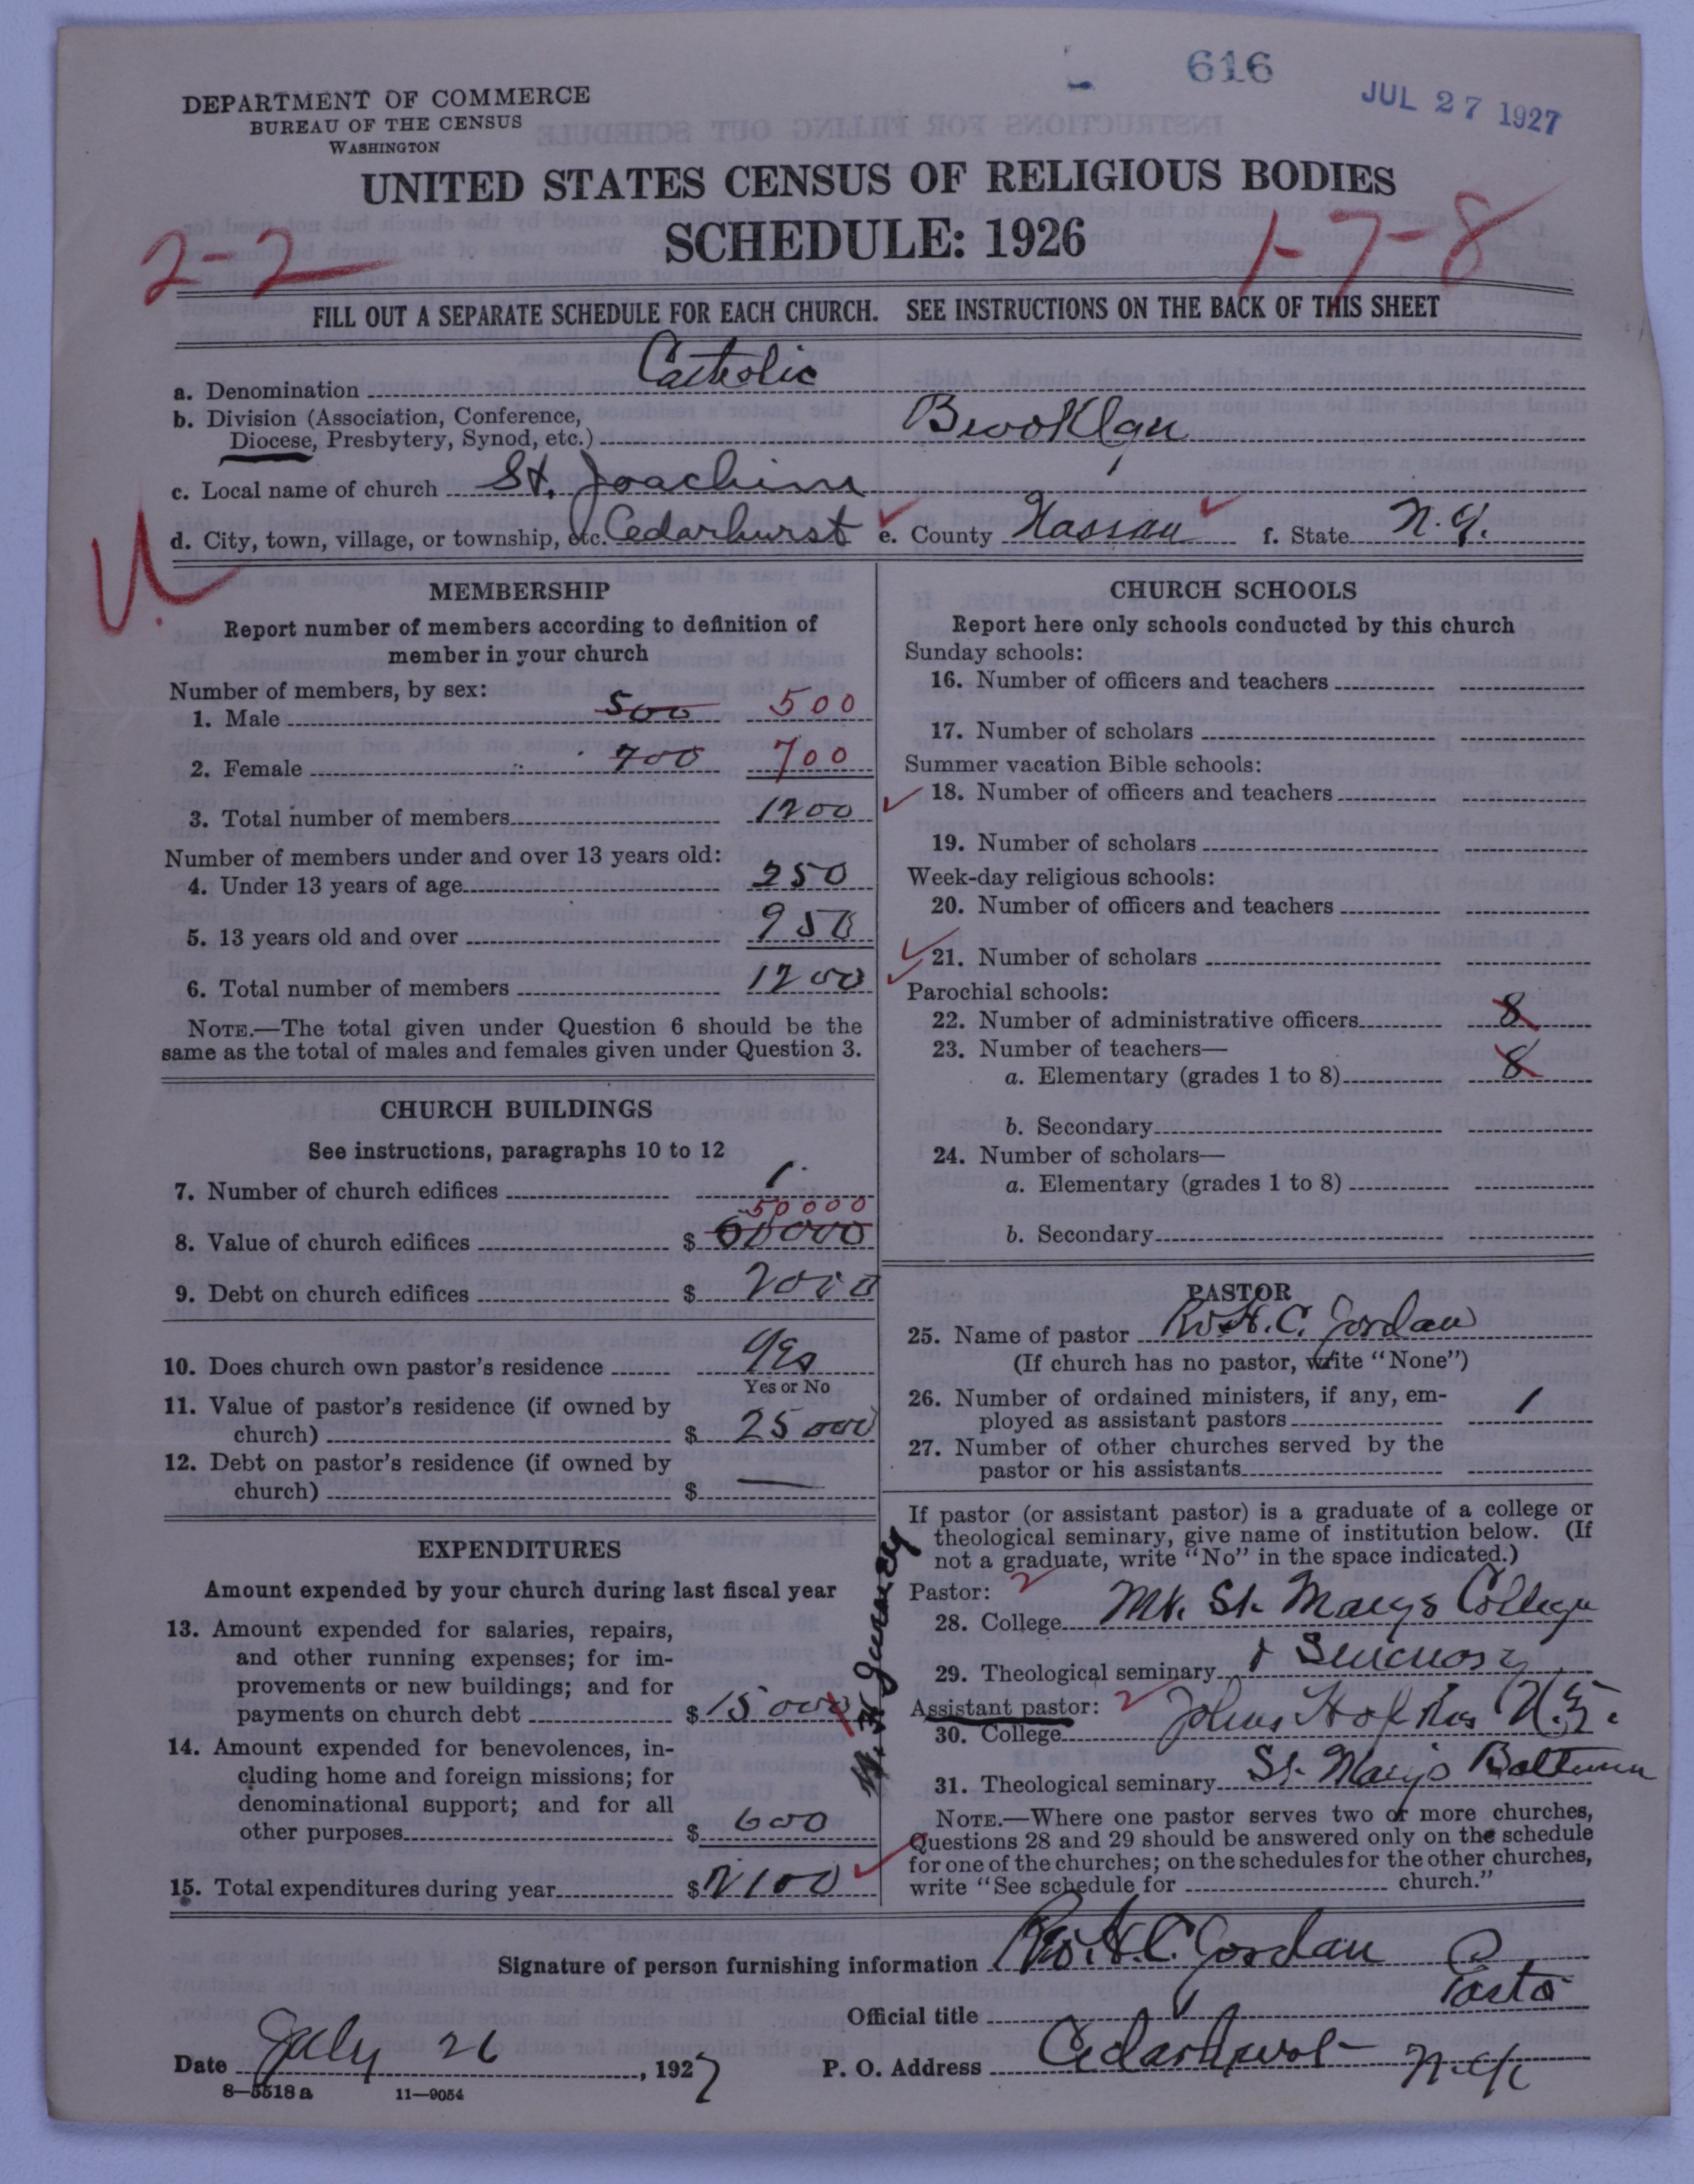 616
JUL 27 1927
DEPARTMENT OF COMMERCE
BUREAU OF THE CENSUS
WASHINGTON
UNITED STATES CENSUS OF RELIGIOUS BODIES
SCHEDULE: 1926
2-2
1-7-8
FILL OUT A SEPARATE SCHEDULE FOR EACH CHURCH. SEE INSTRUCTIONS ON THE BACK OF THIS SHEET
a. Denomination Catholic
b. Division (Association, Conference,
Diocese, Presbytery, Synod, etc.) Brooklyn
c. Local name of church St. Joachim
d. City, town, village, or township, etc. Cedarhurst e. County Nassau f. State N.Y.
U.
MEMBERSHIP
Report number of members according to definition of
member in your church
Number of members, by sex:
1. Male 500 500
2. Female 700 700
3. Total number of members 1200
Number of members under and over 13 years old:
4. Under 13 years of age 250
5. 13 years old and over 950
6. Total number of members 1200
NOTE.—The total given under Question 6 should be the
same as the total of males and females given under Question 3.
CHURCH BUILDINGS
See instructions, paragraphs 10 to 12
7. Number of church edifices 1
50000
8. Value of church edifices $
9. Debt on church edifices $ 2000
10. Does church own pastor's residence Yes
Yes or No
11. Value of pastor's residence (if owned by
church) $ 25000
12. Debt on pastor's residence (if owned by
church) $ —
EXPENDITURES
Amount expended by your church during last fiscal year
13. Amount expended for salaries, repairs,
and other running expenses; for im-
provements or new buildings; and for
payments on church debt $ 15000
14. Amount expended for benevolences, in-
cluding home and foreign missions; for
denominational support; and for all
other purposes $ 600
15. Total expenditures during year $ 2100
CHURCH SCHOOLS
Report here only schools conducted by this church
Sunday schools:
16. Number of officers and teachers
17. Number of scholars
Summer vacation Bible schools:
18. Number of officers and teachers
19. Number of scholars
Week-day religious schools:
20. Number of officers and teachers
21. Number of scholars
Parochial schools:
22. Number of administrative officers 8
23. Number of teachers—
a. Elementary (grades 1 to 8) 8
b. Secondary
24. Number of scholars—
a. Elementary (grades 1 to 8)
b. Secondary
PASTOR
25. Name of pastor Rev H. C. Jordan
(If church has no pastor, write "None")
26. Number of ordained ministers, if any, em-
ployed as assistant pastors 1
27. Number of other churches served by the
pastor or his assistants
If pastor (or assistant pastor) is a graduate of a college or
theological seminary, give name of institution below. (If
not a graduate, write "No" in the space indicated.)
Pastor: 2
28. College Mt. St. Marys College
29. Theological seminary & Seminary
Assistant pastor: 2
30. College Johns Hopkins
31. Theological seminary St. Mary's
NOTE.—Where one pastor serves two or more churches,
Questions 28 and 29 should be answered only on the schedule
for one of the churches; on the schedules for the other churches,
write "See schedule for church."
Signature of person furnishing information Rev. H. C. Jordan
Official title Pastor
Date July 26, 1927 P. O. Address Cedarhurst N.Y.
8—5518 a 11—9054